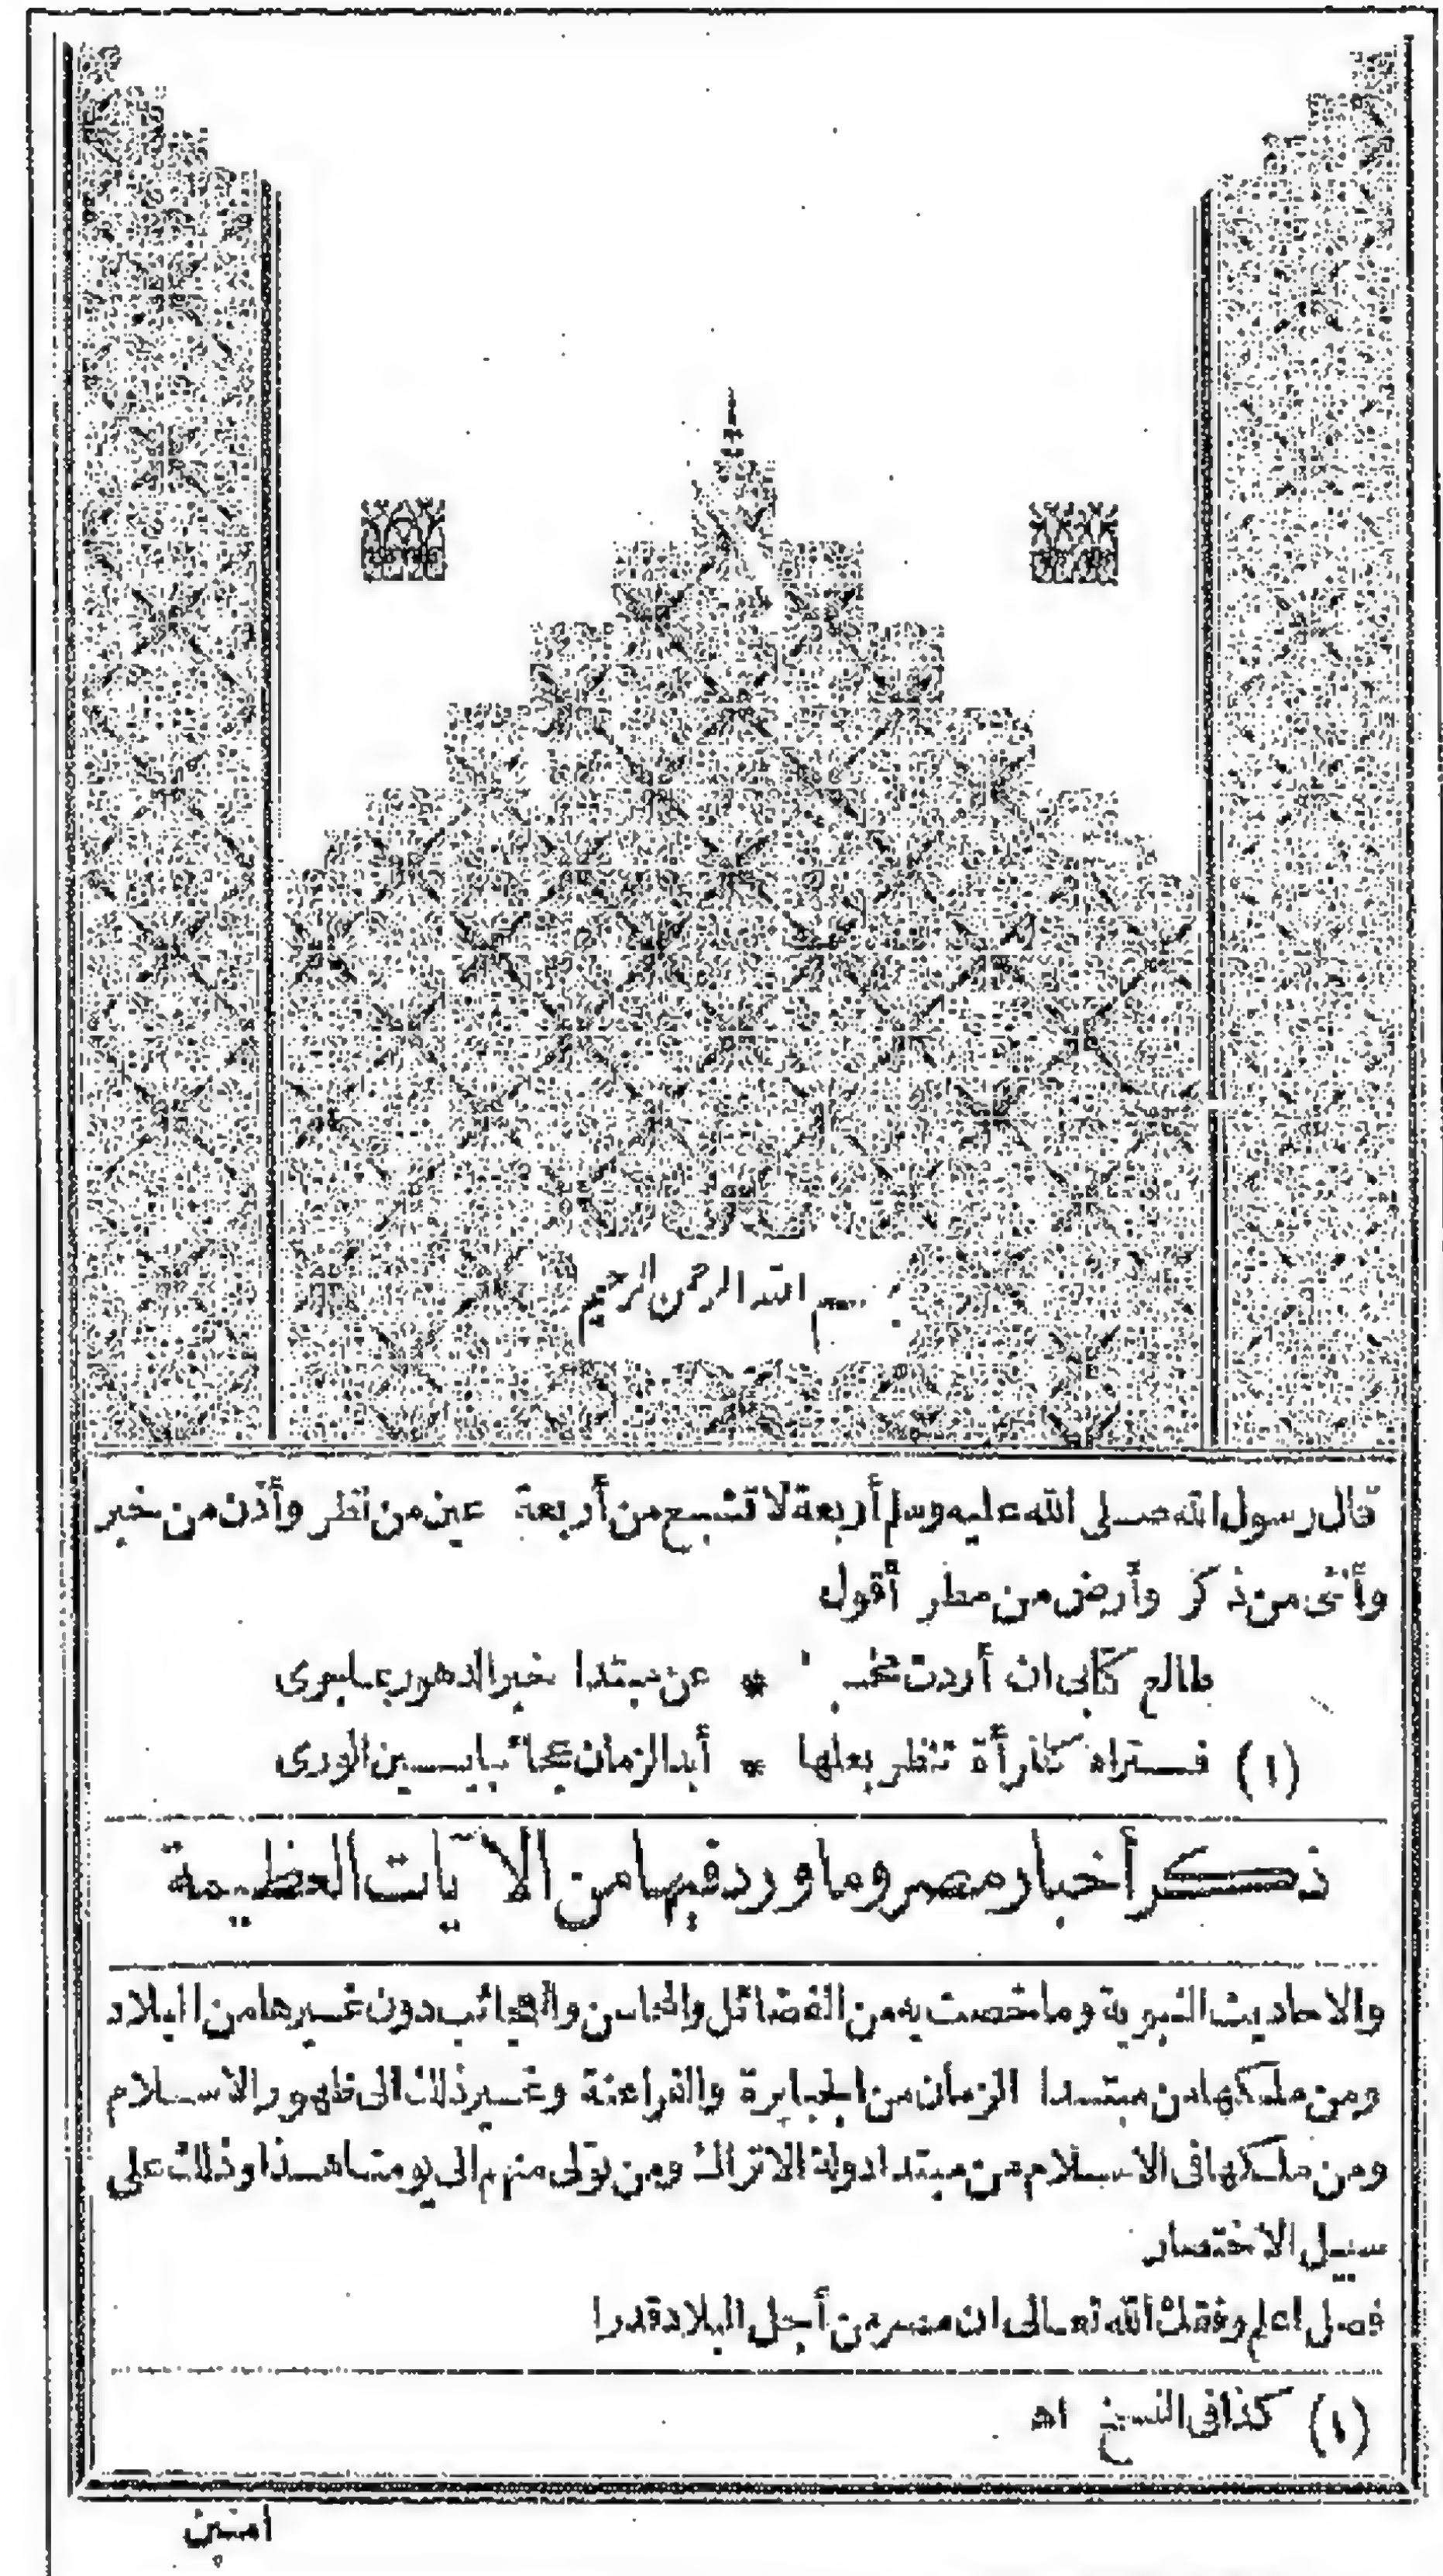 بسم الله الرحمن الرحيم
قال رسول الله صلى الله عليه وسلم أربعة لا تشبع من أربعة عين من نظر وأذن من خبر
وأنثى من ذكر وأرض من مطر أقول
طالع كتابى ان أردت * عن مبتدا خبر الدهور بما جرى
(١) فستراه كامرأة تنظر بعلها * أبد الزمان عجائبا بين الورى
ذكر أخبار مصر وما ورد فيها من الآيات العظيمة
والاحاديث النبوية وما خصت به من الفضائل والمحاسن والعجائب دون غيرها من البلاد
ومن ملكها من مبتدا الزمان من الجبابرة والفراعنة وغير ذلك الى ظهور الاسلام
ومن ملكها فى الاسلام من مبتدا دولة الاتراك ومن تولى منهم الى يومنا هذا وذلك على
سبيل الاختصار
فصل اعلم وفقك الله تعالى ان مصر من أجل البلاد قدرا
(١) كذا فى النسخ اه